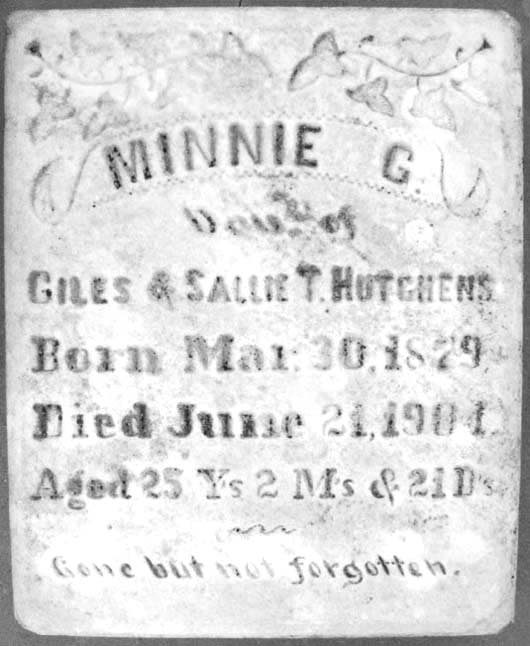 MINNIE G.
Dau. of
GILES & SALLIE T. HUTCHENS
Born Mar. 30, 1879,
Died June 21, 1904.
Aged 25 Ys 2 M's & 21 D's
Gone but not forgotten.